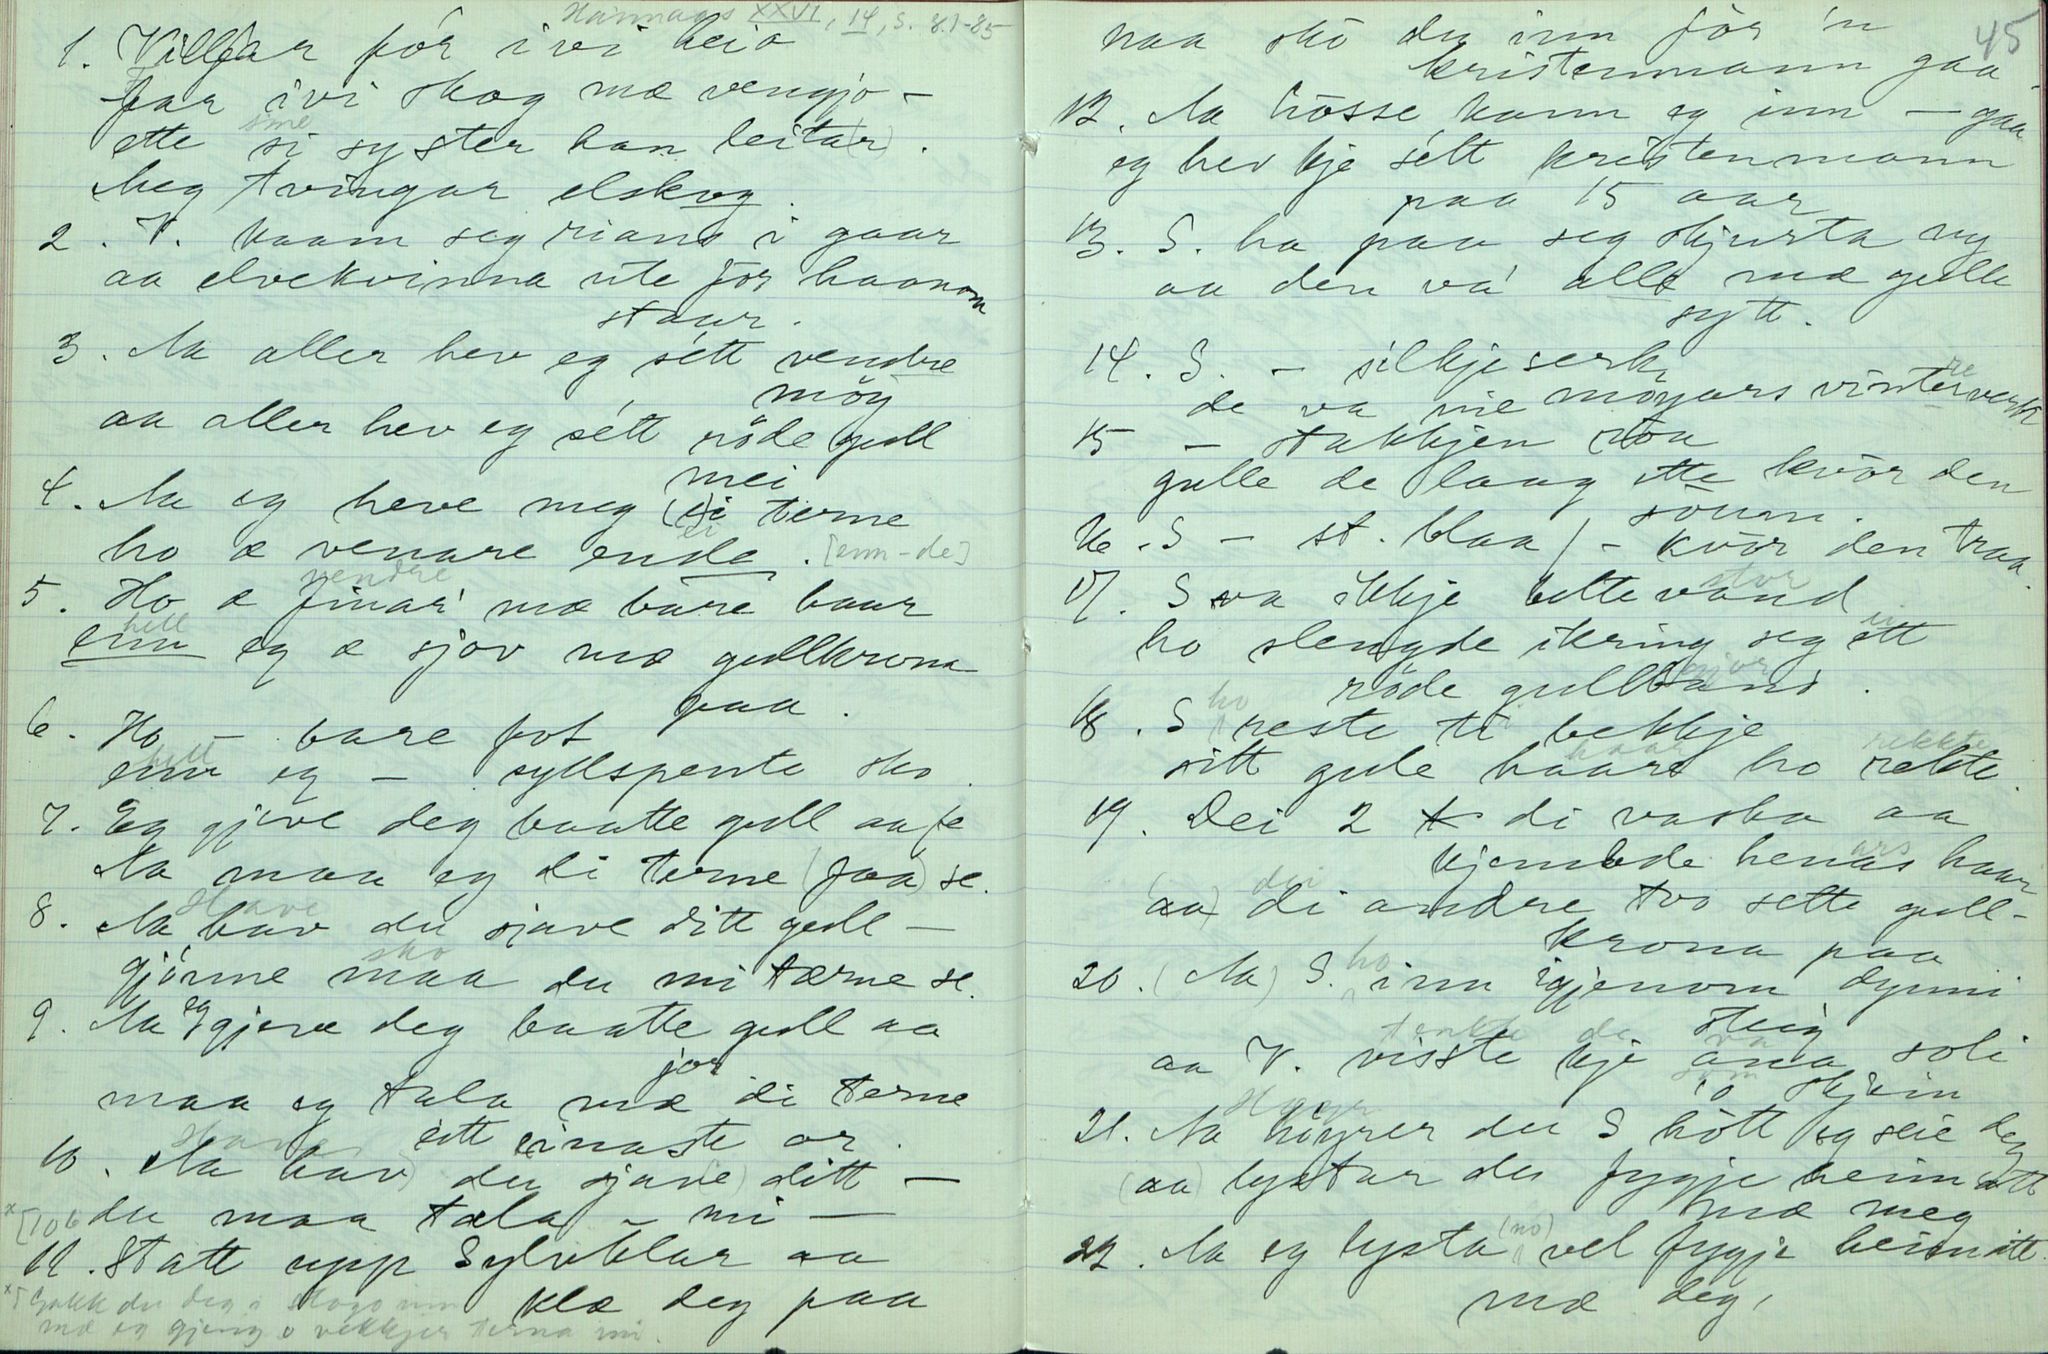 Hannaas XXVI, 14, s. 81-85
1. Villfar fór ivi heio
far ivi skog mæ vengjo -
sine
ette si syster han leita(r).
Meg tvingar elskog.
2. V. kaam seg rians i gaar
aa elvekvinna ute fór haanom
staur.
3. Aa aller hev eg sétt vendre
möy
aa aller hev eg sétt röde gull
mei
4. Aa eg heve meg (ei) terne
ei
ho æ venare enda. [enn-de]
vendre
5. Ho æ finar' mæ bare haar
hell
enn eg æ sjov mæ gullkruna
paa.
6. Ho - bare fot
hell
enn eg - syllspente sko.
7. Eg gjeve deg baatte gull aa fe
Aa maa eg di terne (faa) se.
Have
8. Aa hav du sjave ditt gull -
sko
gjónne maa du mi tærne se.
eg
9. Aa gjeve deg baatte gull aa
jor
maa eg tala mæ di terne
eitt einaste or.
Have
10. Aa hav) du sjav(e) ditt -
x[10b du maa tala - mi -
11. Statt upp Sylvklar aa
klæ deg paa
x[Gakk du deg i skogo inn
mæ eg gjeng o vekkjer terna mi.
45
naa sko du inn fór 'n
kristenmann gaa
12. Aa hósse kann eg inn - gaa
eg hev kje sétt kristenmann
paa 15 aar
13. S. ha paa seg skjurta ny
aa den va' alle mæ gulle
sytt.
14. S. - silkjeserk
re
de va nie möyars vinterverk
15 - stakkjen roa
gulle de laag ette kvór den
sóum.
16. S - st. blaa / - kvór den traa.
stor
17. S va ikkje lettevand
ho slengde ikring seg ett
röde gullband.
ho
18. S reste ti bekkje
haar rekkte
sitt gule haar ho rekte.
19. Dei 2 di vaska aa
ars
kjembde henas haar
dei
(aa) di andre tvo sette gull-
kruna paa
ho
20. (Aa) S. inn igjenom dynni
steig
tenkte de va
aa V. visste kje ana soli
som
o skjein
Höyr
21. Aa höyrer du S hótt eg seie deg
(aa) lystar du fygje heimatt
mæ meg
(no)
22. Aa eg lysta vel fygje heimatt
mæ deg,